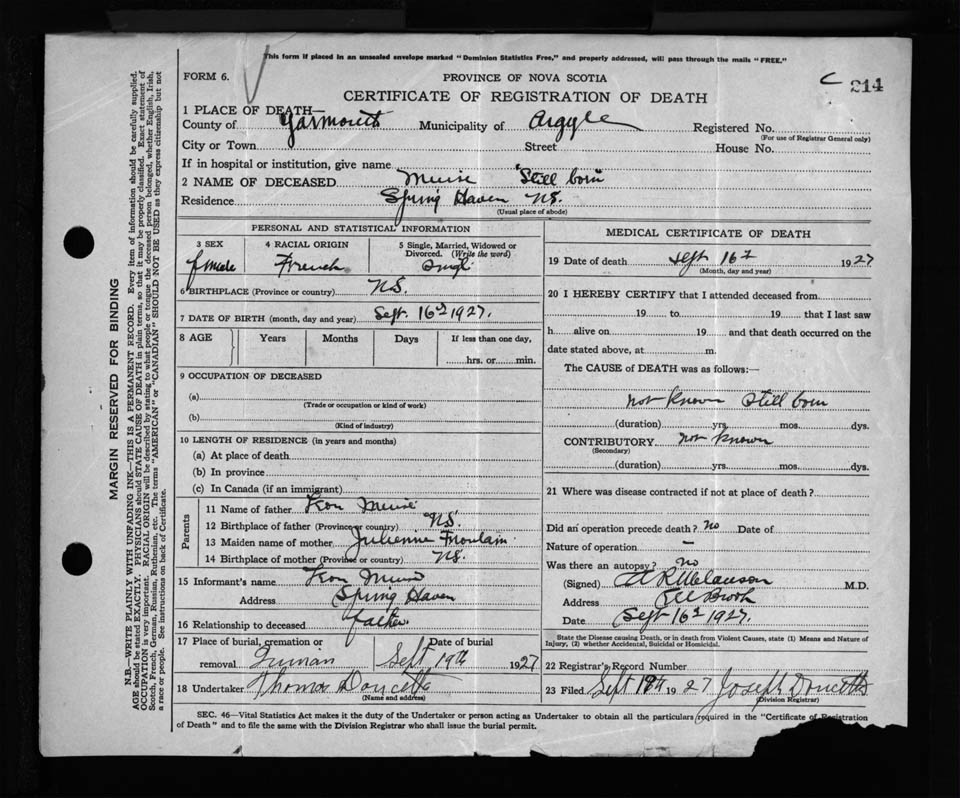 This form if placed in an unsealed envelope marked "Dominion Statistics Free," and properly addressed, will pass through the mails "FREE."
FORM 6.
PROVINCE OF NOVA SCOTIA
C 214
CERTIFICATE OF REGISTRATION OF DEATH
1 PLACE OF DEATH—
County of Yarmouth Municipality of Argyle Registered No.
(For use of Registrar General only)
City or Town Street House No.
If in hospital or institution, give name
2 NAME OF DECEASED Muise Still born
Residence Spring Haven NS.
(Usual place of abode)
PERSONAL AND STATISTICAL INFORMATION
3 SEX 4 RACIAL ORIGIN 5 Single, Married, Widowed or Divorced. (Write the word)
female French Singl
6 BIRTHPLACE (Province or country) NS.
7 DATE OF BIRTH (month, day and year) Sept. 16th 1927.
8 AGE Years Months Days If less than one day,
hrs. or min.
9 OCCUPATION OF DECEASED
(a)
(Trade or occupation or kind of work)
(b)
(Kind of industry)
10 LENGTH OF RESIDENCE (in years and months)
(a) At place of death
(b) In province
(c) In Canada (if an immigrant)
Parents
11 Name of father Leon Muise
12 Birthplace of father (Province or country) NS.
13 Maiden name of mother Julienne
14 Birthplace of mother (Province or country) NS.
15 Informant's name Leon Muise
Address Spring Haven
16 Relationship to deceased father
17 Place of burial, cremation or Date of burial
removal Quinan Sept 19th 1927
18 Undertaker Thomas Doucette
(Name and address)
MEDICAL CERTIFICATE OF DEATH
19 Date of death Sept 16th 1927
(Month, day and year)
20 I HEREBY CERTIFY that I attended deceased from
19 to 19 that I last saw
h alive on 19 and that death occurred on the
date stated above, at m.
The CAUSE of DEATH was as follows:—
not known Still born
(duration) yrs. mos. dys.
CONTRIBUTORY not known
(Secondary)
(duration) yrs. mos. dys.
21 Where was disease contracted if not at place of death?
Did an operation precede death? no Date of
Nature of operation —
Was there an autopsy? no
(Signed) A R Melanson M.D.
Address Eel Brook
Date Sept 16th 1927.
State the Disease causing Death, or in death from Violent Causes, state (1) Means and Nature of
Injury, (2) whether Accidental, Suicidal or Homicidal.
22 Registrar's Record Number
23 Filed Sept 19th 1927 Joseph Doucette
(Division Registrar)
SEC. 46—Vital Statistics Act makes it the duty of the Undertaker or person acting as Undertaker to obtain all the particulars required in the "Certificate of Registration
of Death" and to file the same with the Division Registrar who shall issue the burial permit.
MARGIN RESERVED FOR BINDING
N.B.—WRITE PLAINLY WITH UNFADING INK—THIS IS A PERMANENT RECORD. Every item of information should be carefully supplied.
AGE should be stated EXACTLY. PHYSICIANS should STATE CAUSE OF DEATH in plain terms, so that it may be properly classified. Exact statement of
OCCUPATION is very important. RACIAL ORIGIN will be described by stating to what people or tongue the deceased person belonged, whether English, Irish,
Scotch, French, German, Russian, Ruthenian, etc. The terms "AMERICAN" or "CANADIAN" SHOULD NOT BE USED as they express citizenship but not
a race or people. See instructions on back of Certificate.